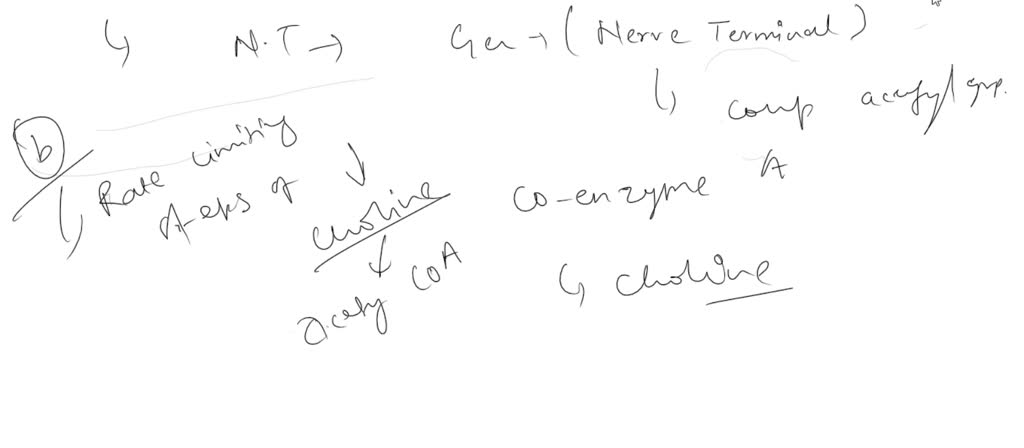 ↳ N.T → Gen → (Nerve Terminal)
↳ comp acetyl grp.
co-enzyme A
↳ choline
(b)
↳ Rate limiting
steps of ↓
choline
↓
acety COA